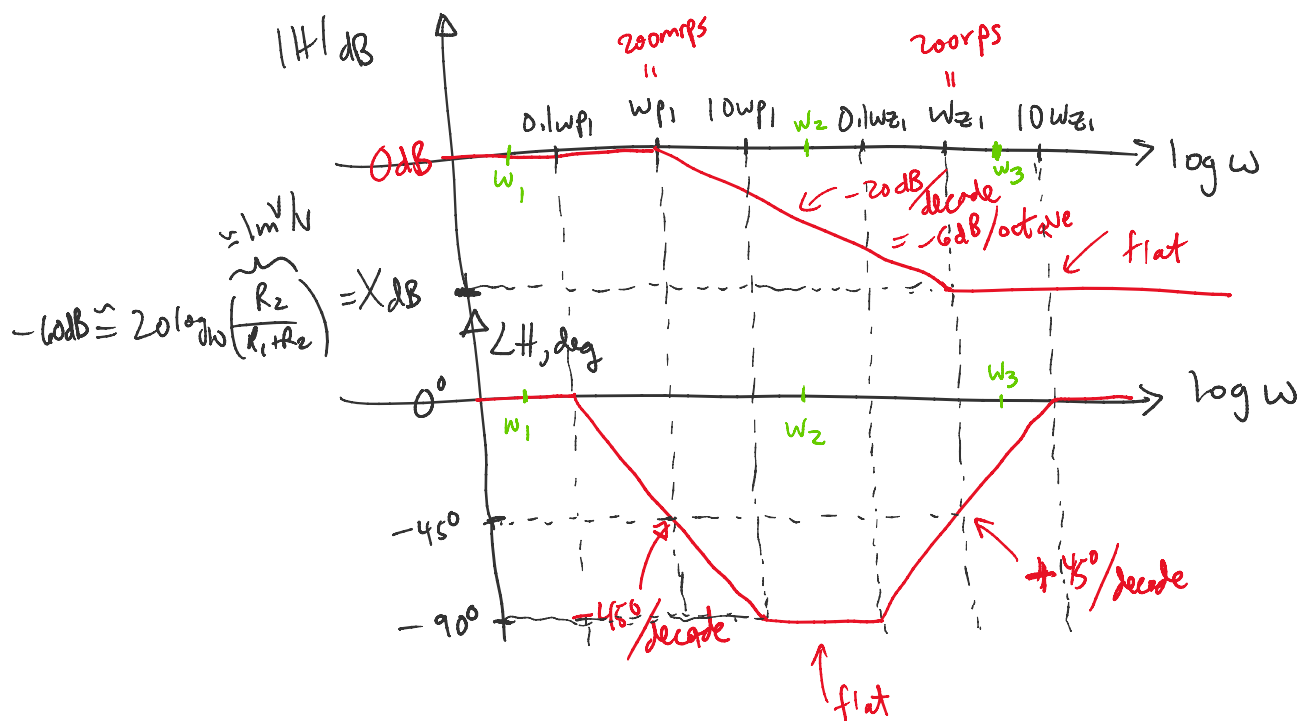 |H|dB
200mrps
=
200rps
=
0.1wp1 wp1 10wp1 w2 0.1wz1 wz1 10wz1
0dB
w1
w3
log w
-20dB/decade
= -6dB/octave
flat
≈1mV/V
-60dB ≅ 20log10(R2/(R1+R2)) = XdB
∠H, deg
0°
w1
w2
w3
log w
-45°
-45°/decade
+45°/decade
-90°
flat